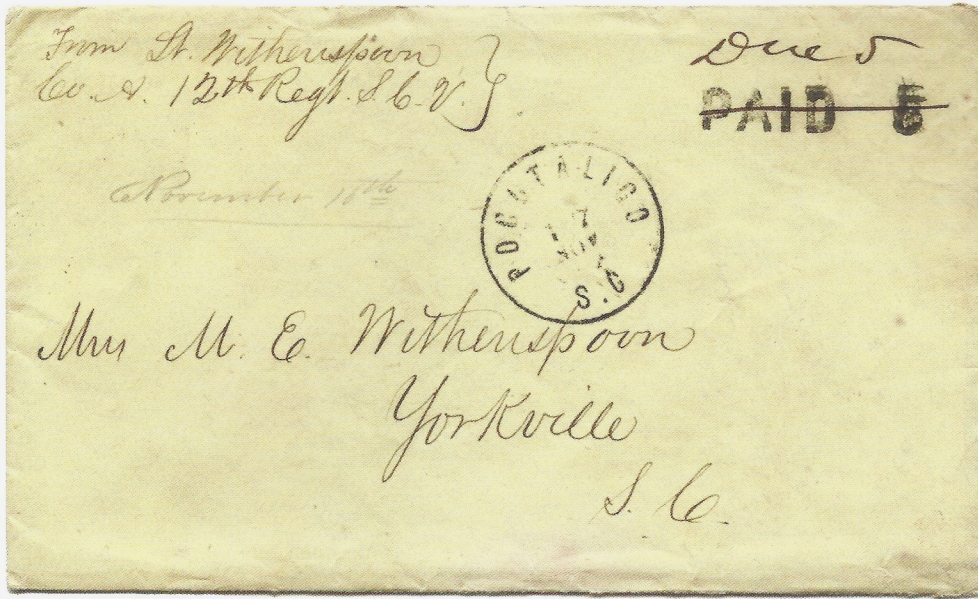 From Lt. Witherspoon
Co. A. 12th Regt. S.C.V.
Due 5
PAID 5
November 16th
POCOTALIGO
NOV
S.C
Mrs M. E. Witherspoon
Yorkville
S. C.